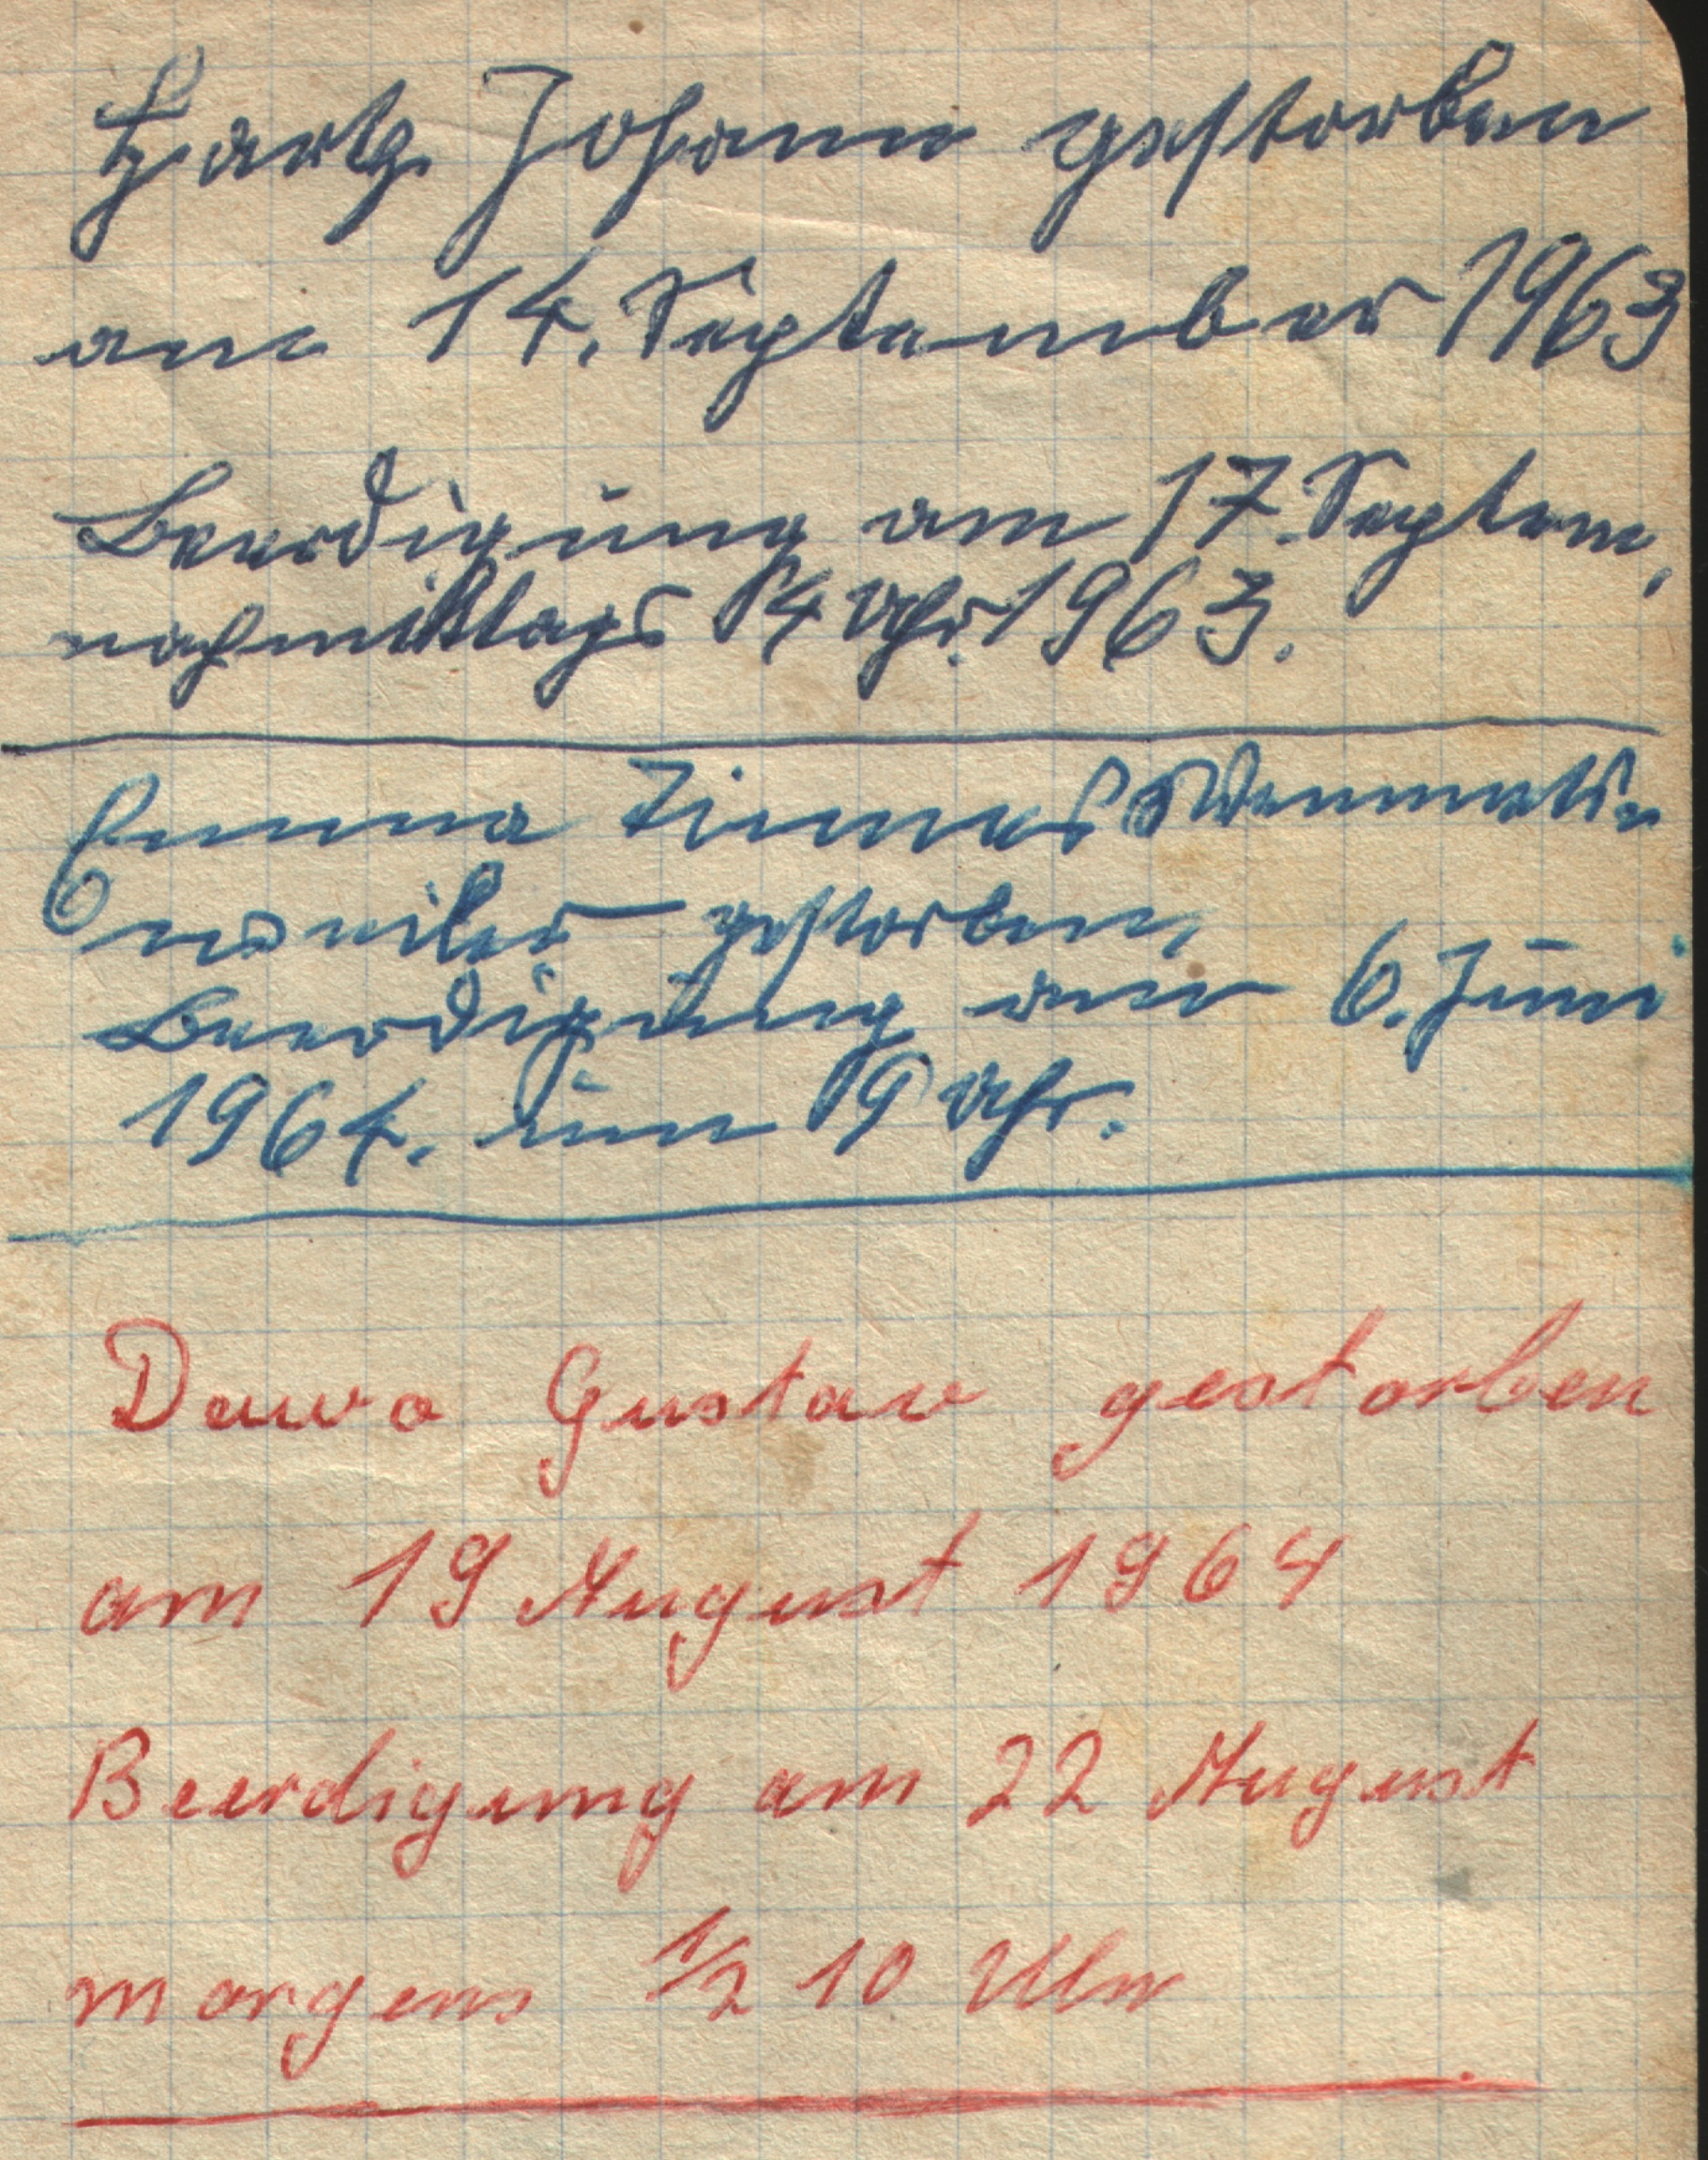 Hartz Johann gestorben
am 14. September 1963
Beerdigung am 17. Septem,
nachmittags 4 Uhr. 1963.
Emma Zimmer
weiler gestorben,
Beerdigung am 6. Juni
1964. um 9 Uhr.
Dawo Gustav gestorben
am 19 August 1964
Beerdigung am 22 August
morgens ½ 10 Uhr